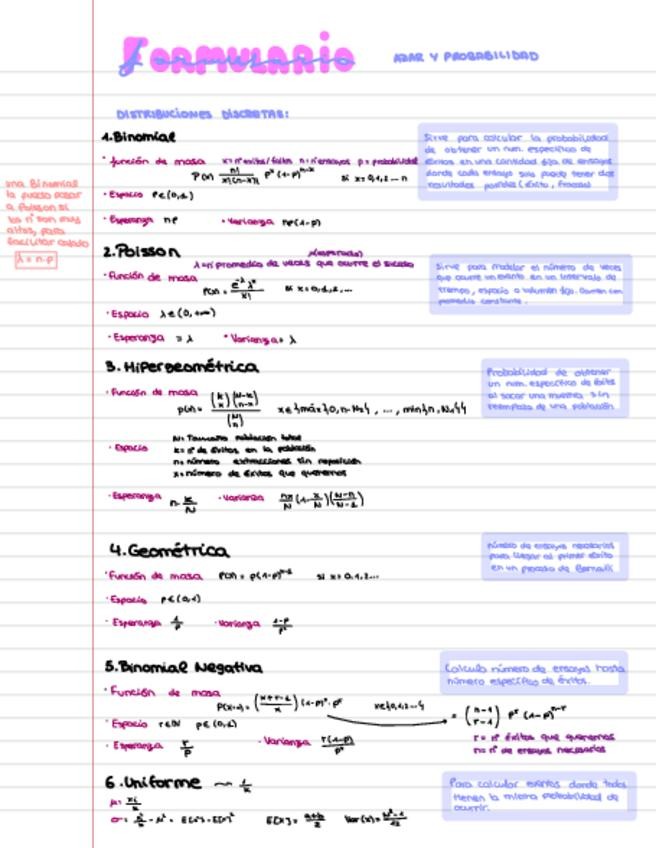 Formulario
AZAR Y PROBABILIDAD
DISTRIBUCIONES DISCRETAS:
1.Binomial
· función de masa x=nº exitos/fallos n=nº ensayos p=probabilidad
P(x) n!/x!(n-x)! pˣ (1-p)ⁿ⁻ˣ si x=0,1,2... n
· Espacio p∈(0,1)
· Esperanza np · Varianza np(1-p)
Sirve para calcular la probabilidad
de obtener un num. específico de
éxitos en una cantidad fija de ensayos
donde cada ensayo solo puede tener dos
resultados posibles (éxito, fracaso)
una Binomial
la puedo pasar
a Poisson si
los nº son muy
altos, para
facilitar calculo
λ = n·p
2.Poisson
λ=nº promedio de veces que ocurre el suceso
· Función de masa
P(x)= e^-λ λˣ/x! si x=0,1,2,...
· Espacio λ∈(0,+∞)
· Esperanza = λ · Varianza= λ
Sirve para modelar el número de veces
que ocurre un evento en un intervalo de
tiempo, espacio o volumen fijo.
promedio constante.
3. Hipergeométrica
· Función de masa
P(x)= (k x)(N-k n-x)/(N n)
· Espacio
N= Tamaño población total
k= nº de éxitos en la población
n= número extracciones sin reposición
x= número de éxitos que queremos
· Esperanza n· k/N · Varianza
Probabilidad de obtener
un num. específico de éxitos
al sacar una muestra sin
reemplazo de una población
4.Geométrica
· Función de masa si x=0,1,2...
· Espacio p∈(0,1)
· Esperanza 1/p · Varianza 1-p/p²
número de ensayos necesarios
para llegar al primer éxito
en un proceso de Bernoulli
5.Binomial Negativa
· Función de masa
= (n-1 r-1) pʳ (1-p)ⁿ⁻ʳ
· Espacio r∈N p∈(0,1)
r= nº éxitos que queremos
n= nº de ensayos necesarios
· Esperanza r/p · Varianza r(1-p)/p²
Calcula número de ensayos hasta
número específico de éxitos.
6.Uniforme ~ 1/k
E[X]= a+b/2 Var(x)=
Para calcular eventos donde todos
tienen la misma probabilidad de
ocurrir.